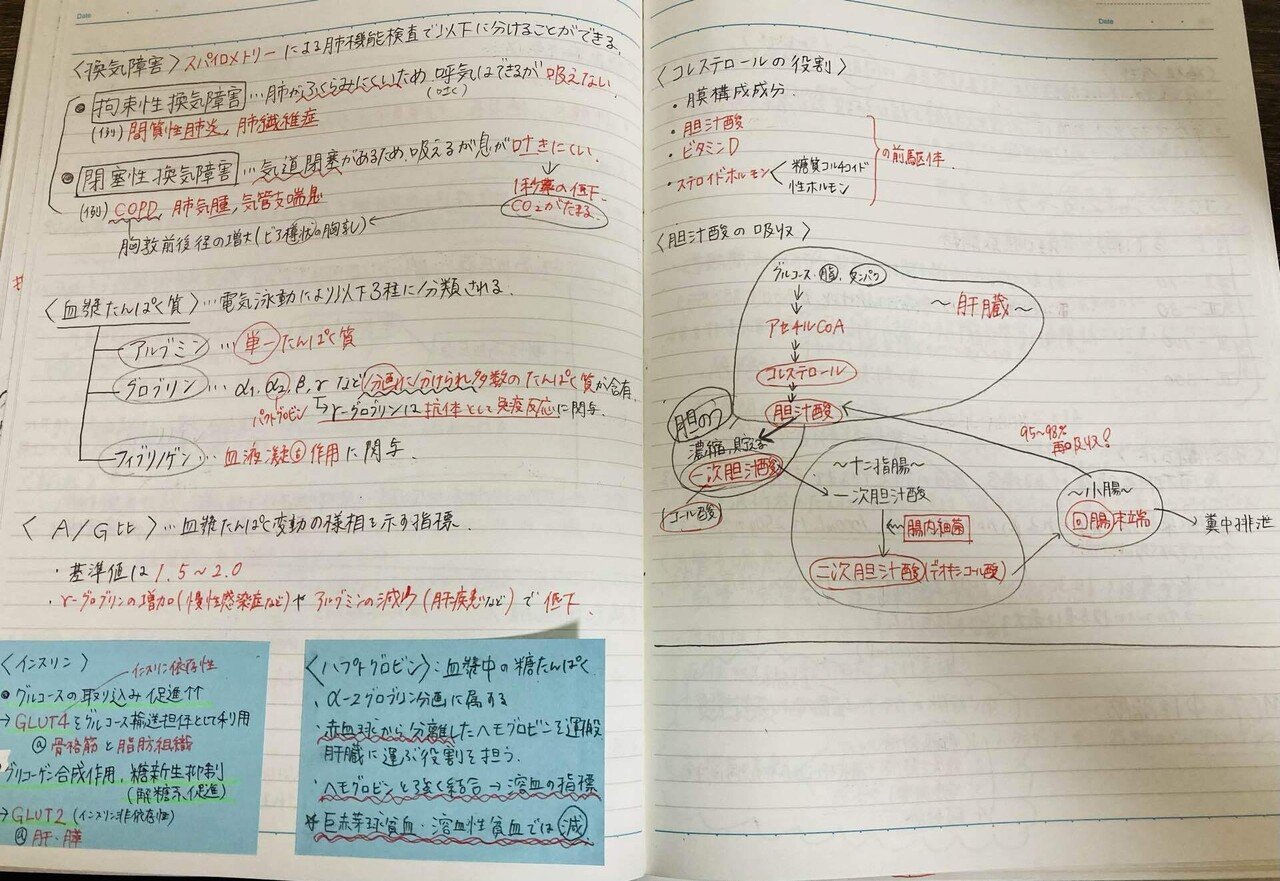 Date
〈換気障害〉スパイロメトリーによる肺機能検査で以下に分けることができる.
拘束性換気障害…肺がふくらみにくいため呼気はできるが吸えない
(吐く)
(例) 間質性肺炎、肺繊維症
閉塞性換気障害…気道閉塞があるため、吸えるが息が吐きにくい.
(例) COPD、肺気腫、気管支喘息
1秒率の低下
CO2がたまる
胸郭前後径の増大(ビア樽状の胸郭)
〈血漿たんぱく質〉…電気泳動により以下3種に分類される.
アルブミン…単一たんぱく質
グロブリン…α1、α2、β、γなど分画に分けられ多数のたんぱく質が含有.
ハプトグロビン γ-グロブリンは抗体として免疫反応に関与.
フィブリノゲン…血液凝固作用に関与.
〈A/G比〉…血漿たんぱく変動の様相を示す指標.
・基準値は1.5~2.0
・γ-グロブリンの増加(慢性感染症など)やアルブミンの減少(肝疾患など)で低下.
〈インスリン〉
インスリン依存性
グルコースの取り込み促進↑↑
→GLUT4をグルコース輸送担体として利用
@骨格筋と脂肪組織
グリコーゲン合成作用、糖新生抑制
(解糖系促進)
→GLUT2(インスリン非依存性)
@肝・膵
〈ハプトグロビン〉:血漿中の糖たんぱく
・α-2グロブリン分画に属する
・赤血球から分離したヘモグロビンを運搬
肝臓に運ぶ役割を担う.
・ヘモグロビンと強く結合→溶血の指標
巨赤芽球貧血・溶血性貧血では減
Date
〈コレステロールの役割〉
・膜構成成分.
・胆汁酸
・ビタミンD
・ステロイドホルモン
糖質コルチコイド
性ホルモン
の前駆体.
〈胆汁酸の吸収〉
グルコース・脂、タンパク
~肝臓~
アセチルCoA
コレステロール
胆汁酸
胆のう
濃縮、貯える
一次胆汁酸
コール酸
95~98%
再吸収!
~十二指腸~
一次胆汁酸
腸内細菌
二次胆汁酸(デオキシコール酸)
~小腸~
回腸末端
糞中排泄